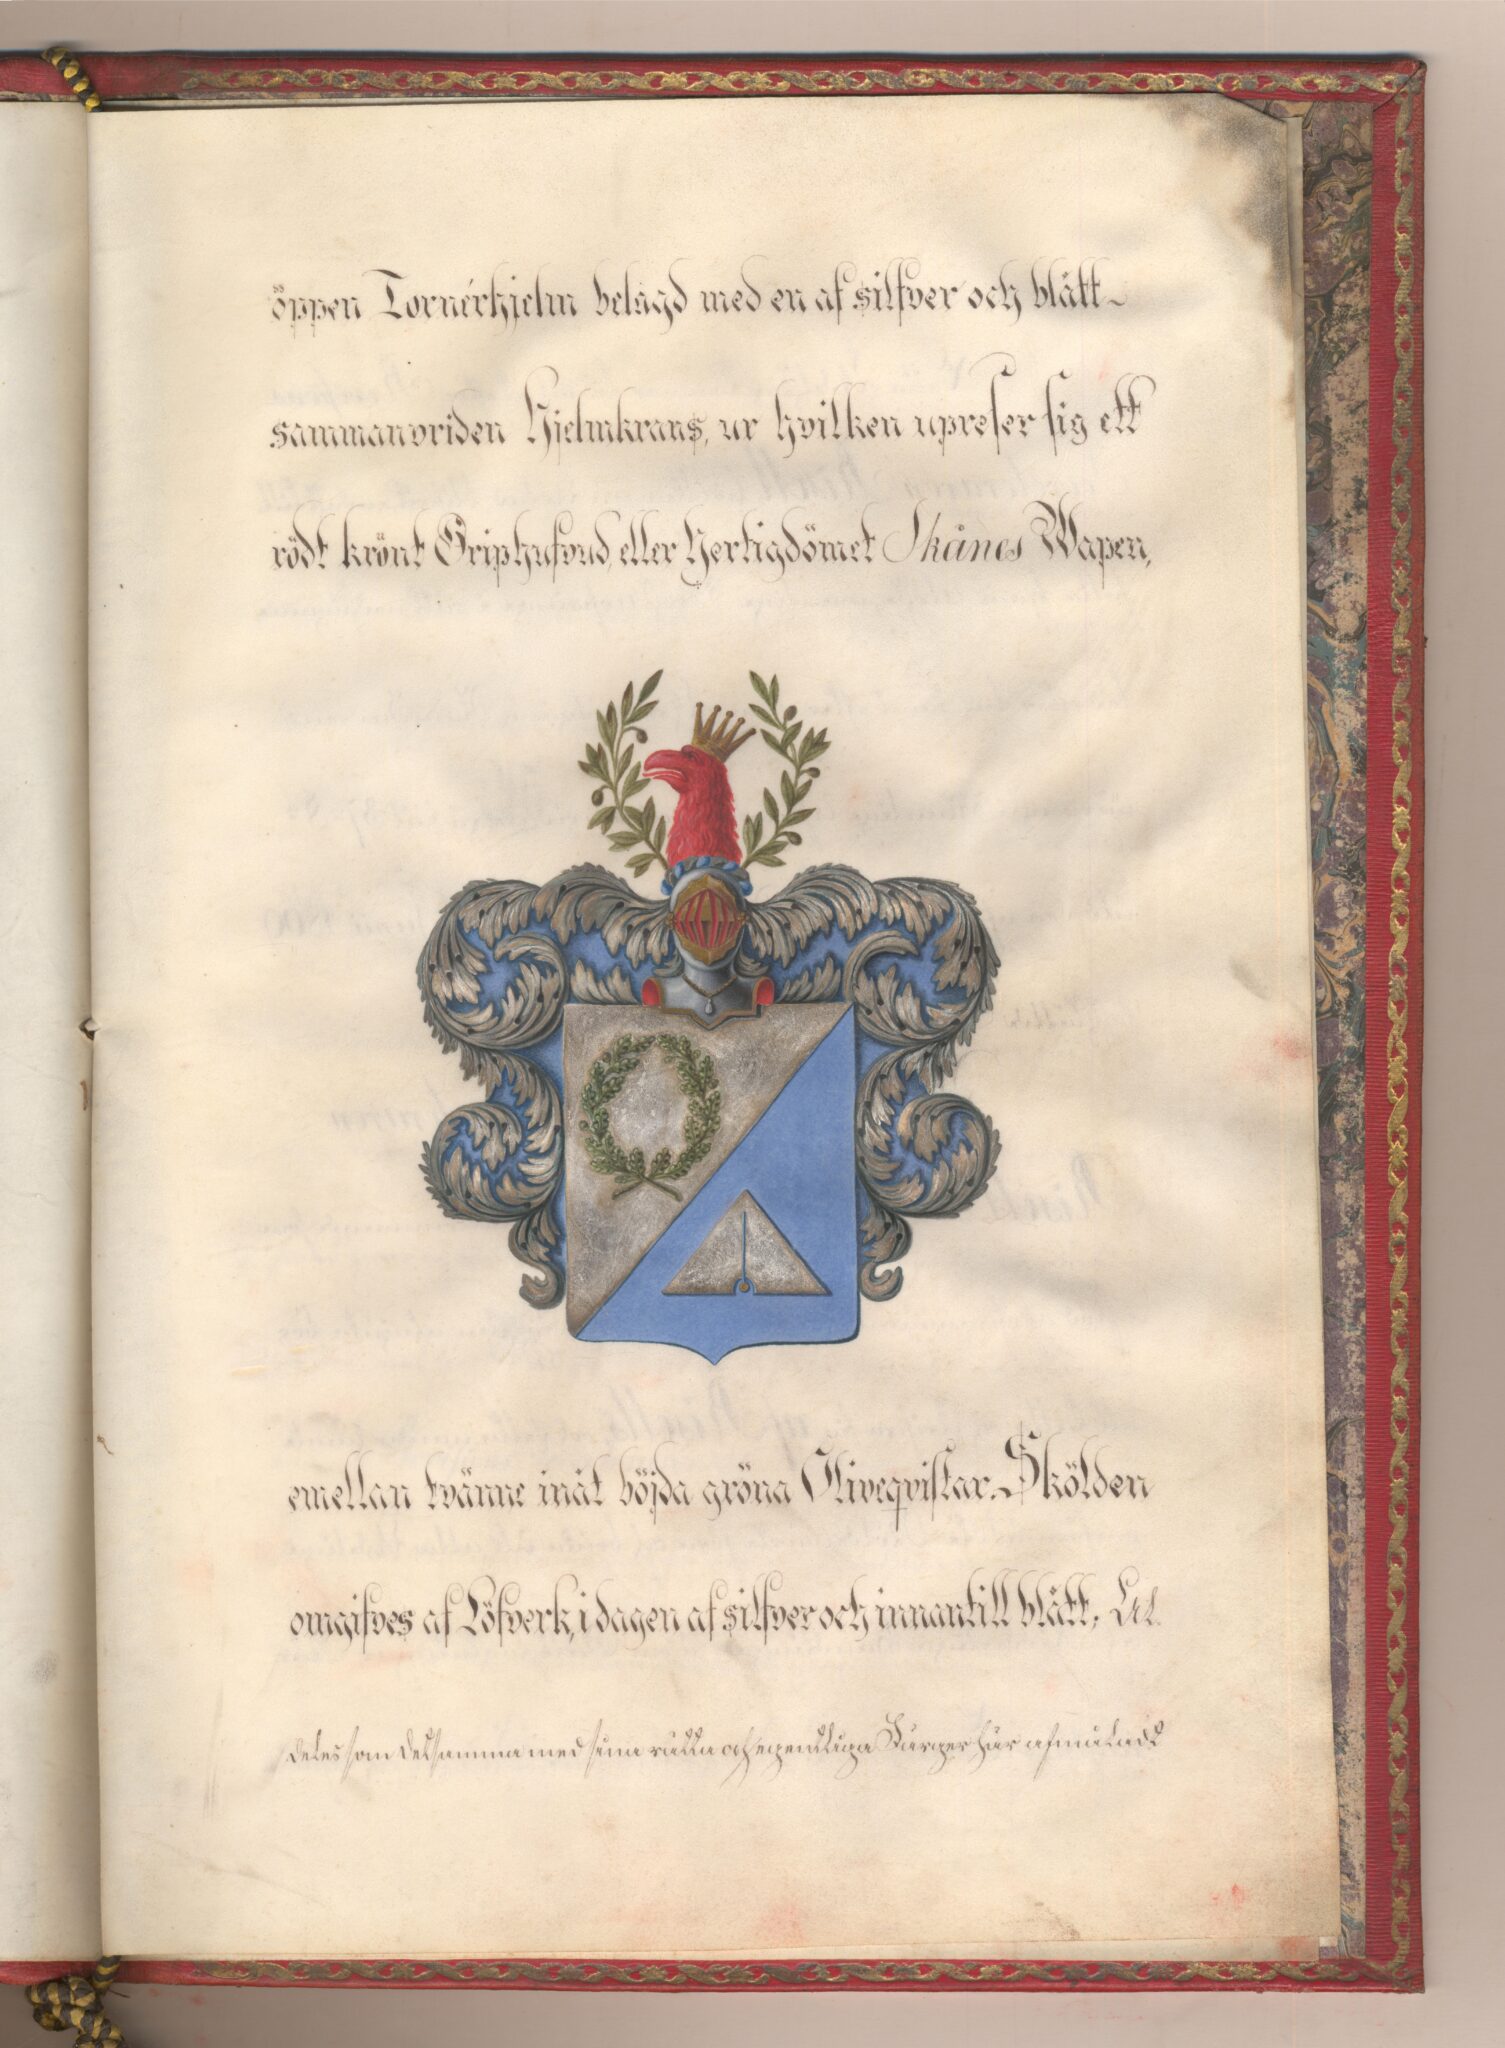 öppen Tornérhjelm belagd med en af silfver och blått
sammanvriden Hjelmkrans, ur hvilken upreser sig ett
rödt krönt Griphufvud, eller Hertigdömet Skånes Wapen,
emellan tvänne inåt böjda gröna Oliveqvistar. Skölden
omgifves af Löfverk, i dagen af silfver och innantill blått;
deles som detsamma med sina rätta och egentliga Färger här afmåladt